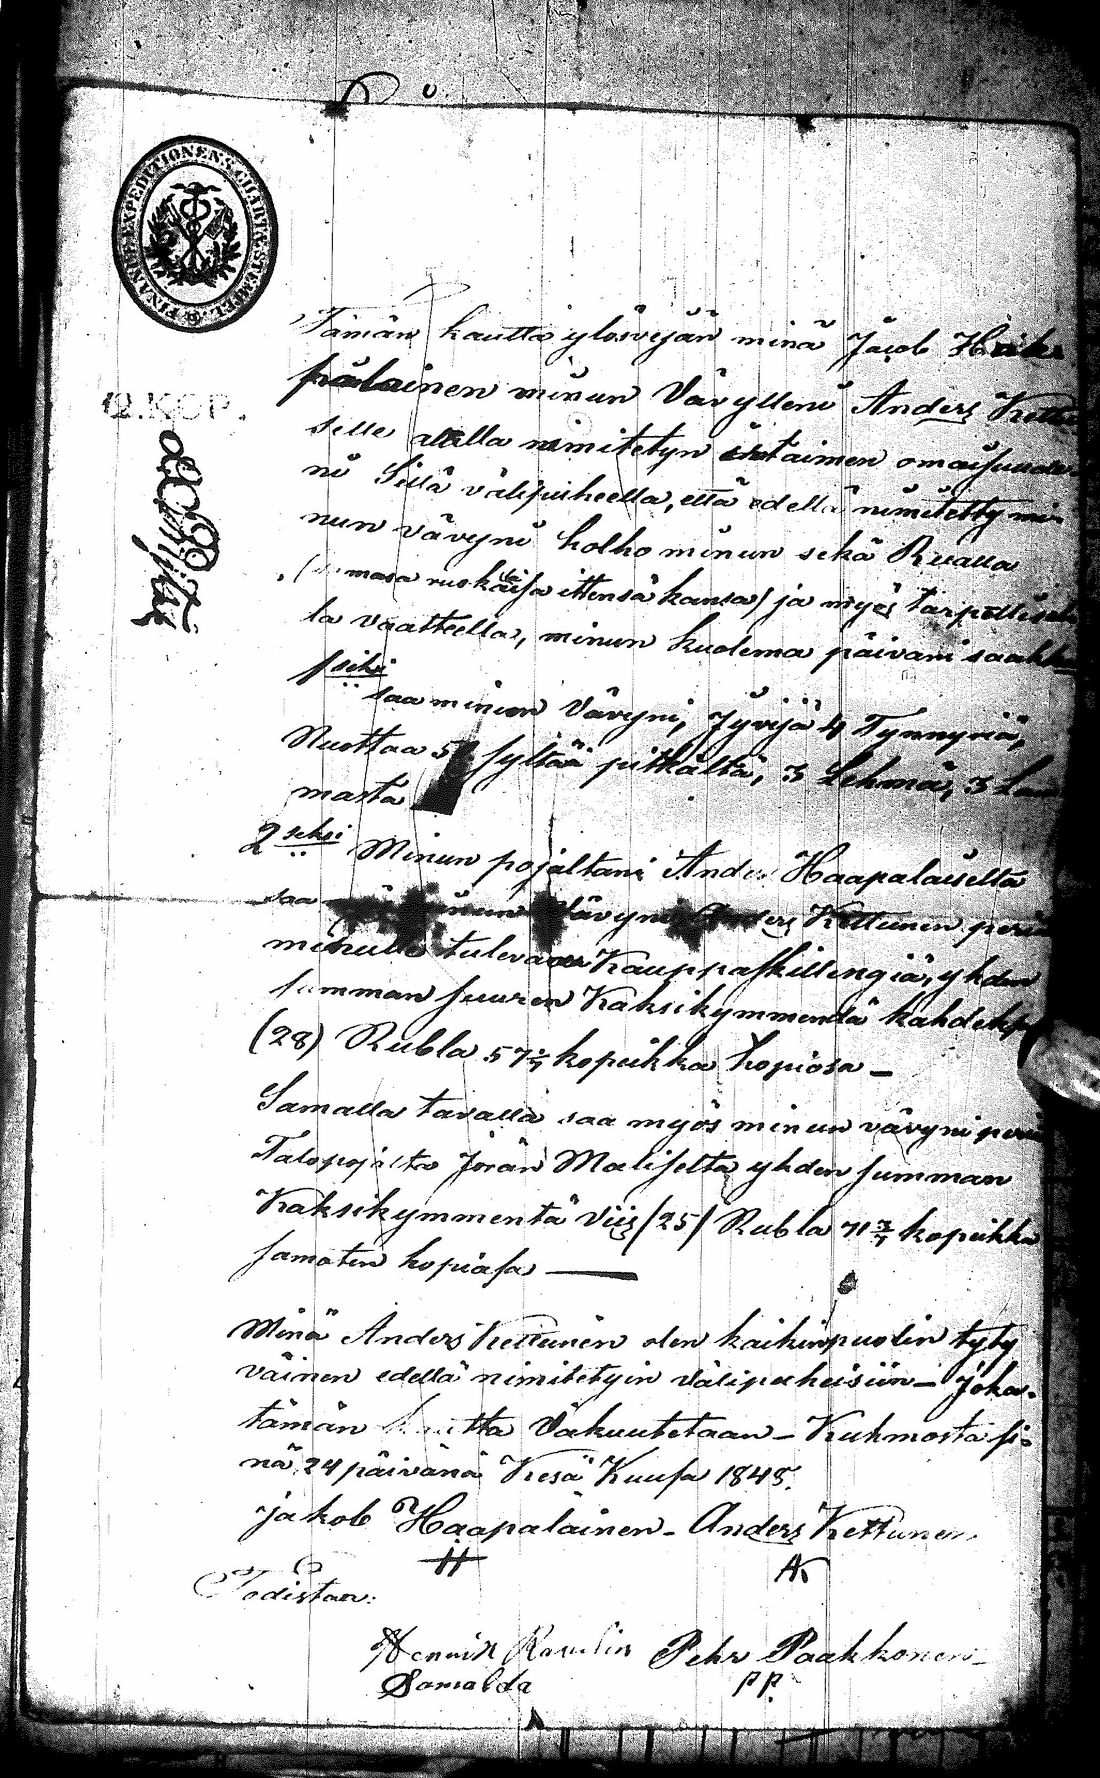 FINANCE-EXPEDITIONENS CHARTÆ-STEMPEL
12.KOP.
Tämän kautta ylösvejän minä Jacob Haa
palainen minun Vävylleni Anders Kettu
selle alla nimitetyn irtaimen omaisuude
ni Sillä välipuheella, että edellä nimitetty mi-
nun vävyni holho minun sekä Ruualla
masa ruokaisa ittensä kansa) ja myös tarpellisel
la vaatteella, minun kuolema päivani saakka
1 seksi
saa minun Vävyni, Jyvijä 4 Tynnyriä,
Nuottaa 5 syltää pitkältä, 3 Lehmä, 3 Lam
masta
2 seksi Minun pojaltani And Haapalaiselta
saa minun Vävyni Anders Kettunen periä
minulle tulevaa Kauppaskillengiä, yhden
summan suuren Kaksikymmendä kahdeksa
(28) Rubla 57 1/7 kopeikka hopiosa -
Samalla tavalla saa myös minun vävyni periä
Talopojalta Jörän Maliselta yhden summan
Kaksikymmentä Viis (25) Rubla 71 3/7 kopeikka
samaten hopiasa —
Minä Anders Kettunen olen kaikinpuolin tyty
väinen edellä nimitetyin välipuheisiin - Joka
tämän kautta Vakuutetaan - Kuhmosta si-
nä 24 päivänä Kesä Kuusa 1848.
Jakob Haapalainen - Anders Kettunen
H AK
Todistaa:
Henrik Pehr Paakkonen -
PP.